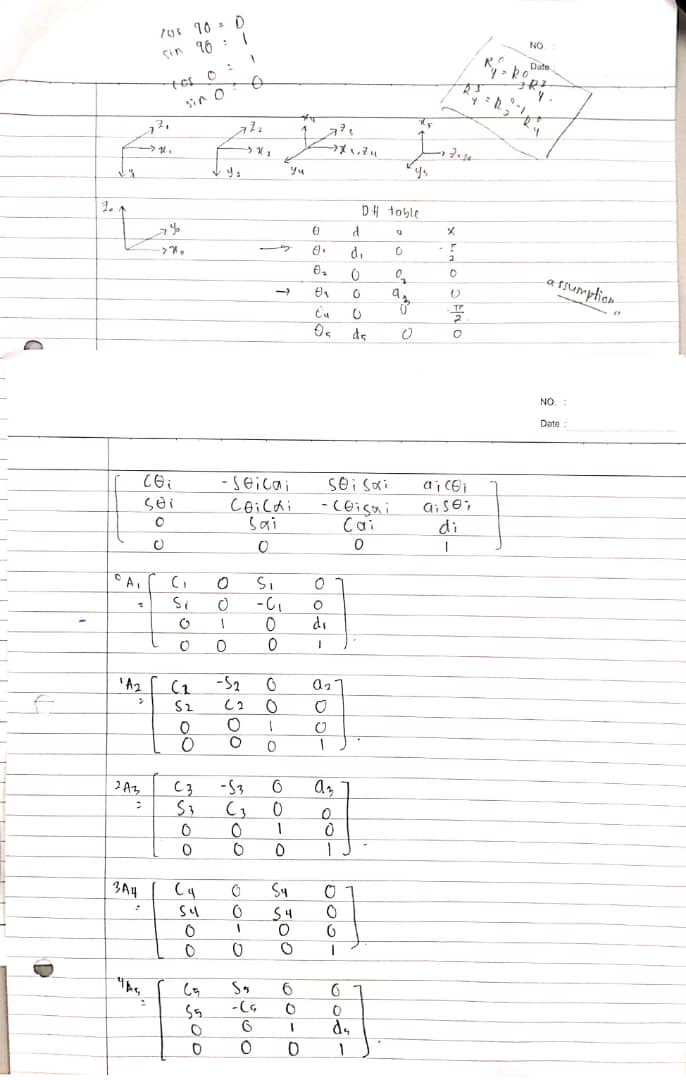 cos 90 = 0
sin 90 : 1
cos 0 : 1
sin 0 : 0
NO. :
Date
z₁
x₁
z₂
x₂
y₂
x₄
y₄
x₅
y₅
z₀
y₀
x₀
DH table
θ d a α
θ₁ d₁ 0 -π/2
θ₂ 0 a₂ 0
θ₃ 0 a₃ 0
θ₄ 0 0 π/2
θ₅ d₅ 0 0
assumption
NO. :
Date :
cθi -sθicαi sθisαi aicθi
sθi cθicαi -cθisαi aisθi
0 sαi cαi di
0 0 0 1
⁰A₁ = C₁ 0 S₁ 0
S₁ 0 -C₁ 0
0 1 0 d₁
0 0 0 1
¹A₂ = C₂ -S₂ 0 a₂
S₂ C₂ 0 0
0 0 1 0
0 0 0 1
²A₃ = C₃ -S₃ 0 a₃
S₃ C₃ 0 0
0 0 1 0
0 0 0 1
3A₄ = C₄ 0 S₄ 0
S₄ 0 S₄ 0
0 1 0 0
0 0 0 1
⁴A₅ = C₅ S₅ 0 0
S₅ -C₅ 0 0
0 0 1 d₅
0 0 0 1